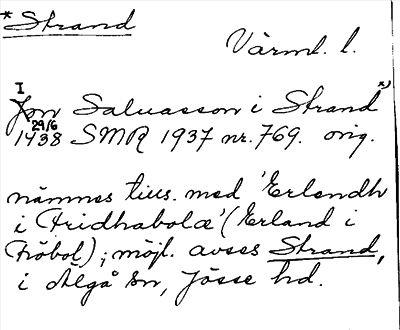 *Strand
Värml. l.
I
Jon Saluasson i Strand *)
29/6
1438 SMR 1937 nr. 769. orig.
nämnes tills. med 'Erlendh
i Fridhabolæ' (Erland i
Fröbol); möjl. avses Strand,
i Älgå sn, Jösse hd.